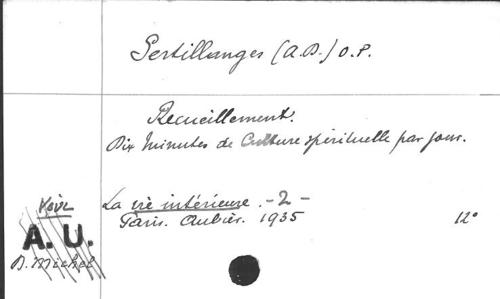 Sertillanges (A.D.) O.P.
Recueillement.
Dix minutes de Culture spirituelle par jour.
La vie intérieure. - 2 -
Paris. Aubier. 1935 12°
Voir
A. U.
D. Michel